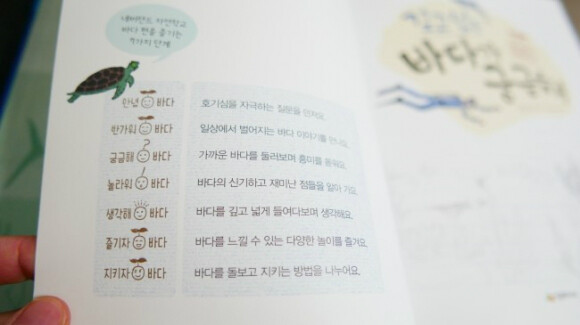 내버랜드 자연학교
바다 편을 즐기는
7가지 단계
안녕 바다 호기심을 자극하는 질문을 던져요.
반가워 바다 일상에서 벌어지는 바다 이야기를 만나요.
궁금해 바다 가까운 바다를 둘러보며 흥미를 돋워요.
놀라워 바다 바다의 신기하고 재미난 점들을 알아 가요.
생각해 바다 바다를 깊고 넓게 들여다보며 생각해요.
즐기자 바다 바다를 느낄 수 있는 다양한 놀이를 즐겨요.
지키자 바다 바다를 돌보고 지키는 방법을 나누어요.
바다가
궁금해